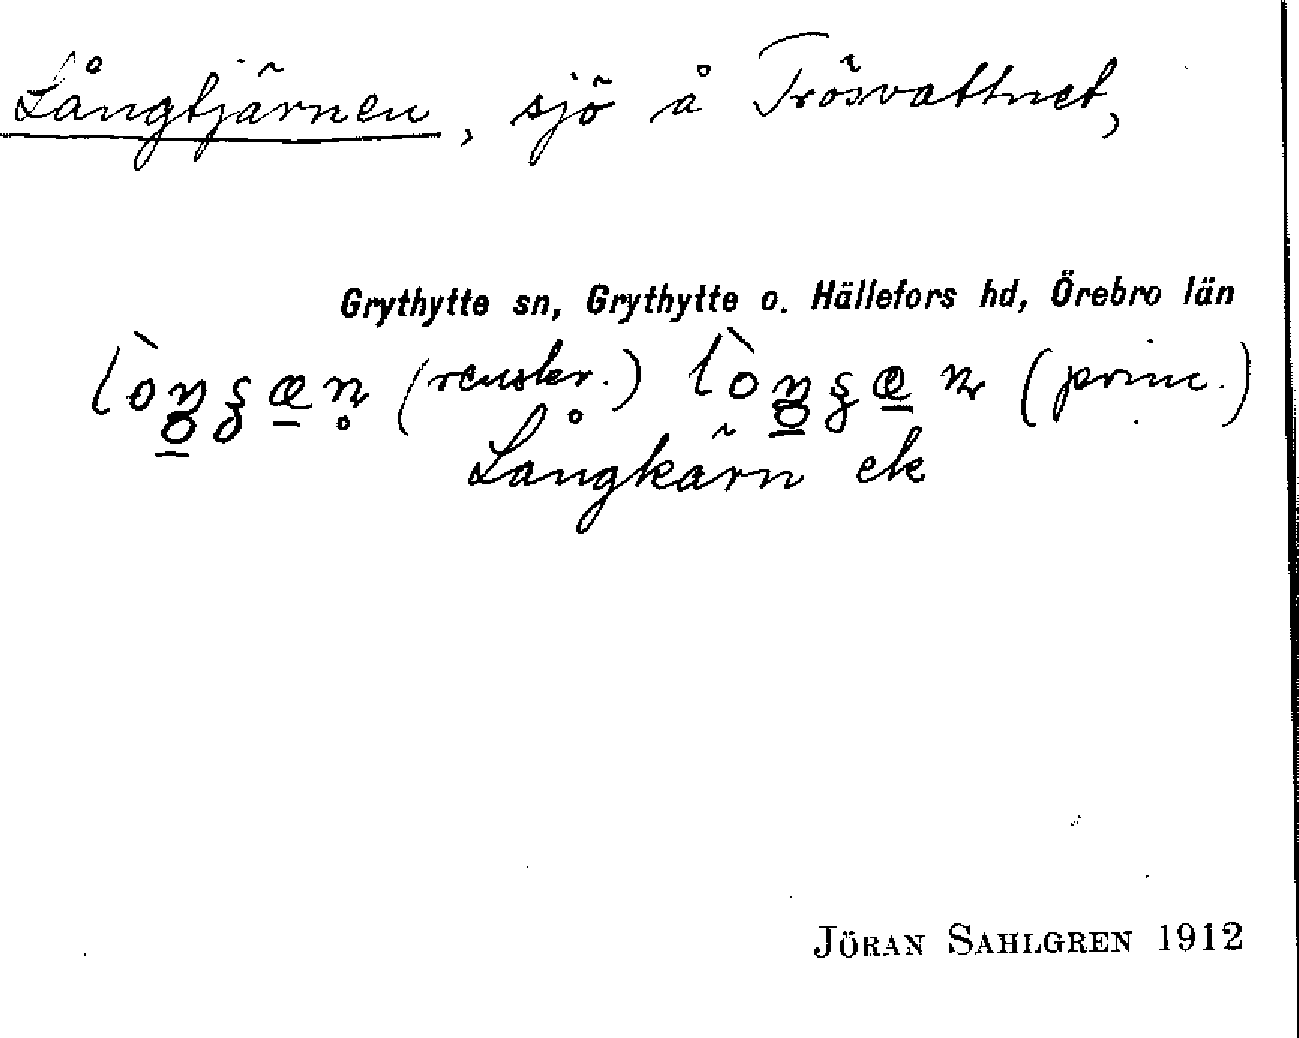 Långtjärnen, sjö å Trösvattnet,
Grythytte sn, Grythytte o. Hällefors hd, Örebro län
(renskr.) (princ.)
Långkärn ek
JÖRAN SAHLGREN 1912